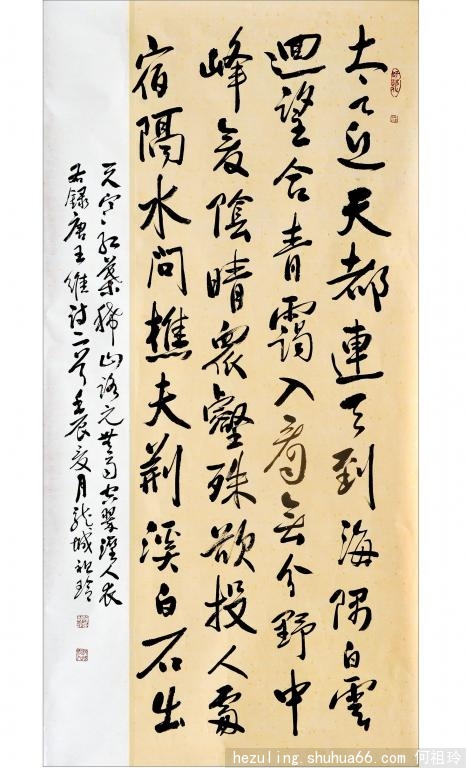 太乙近天都連天到海隅白雲
迴望合青靄入看無分野中
峰變陰晴眾壑殊欲投人處
宿隔水問樵夫荊溪白石出
天寒紅葉稀山路元無雨空翠濕人衣
右録唐王維詩二首壬辰夏月龍城祖玲
hezuling.shuhua66.com 何祖玲